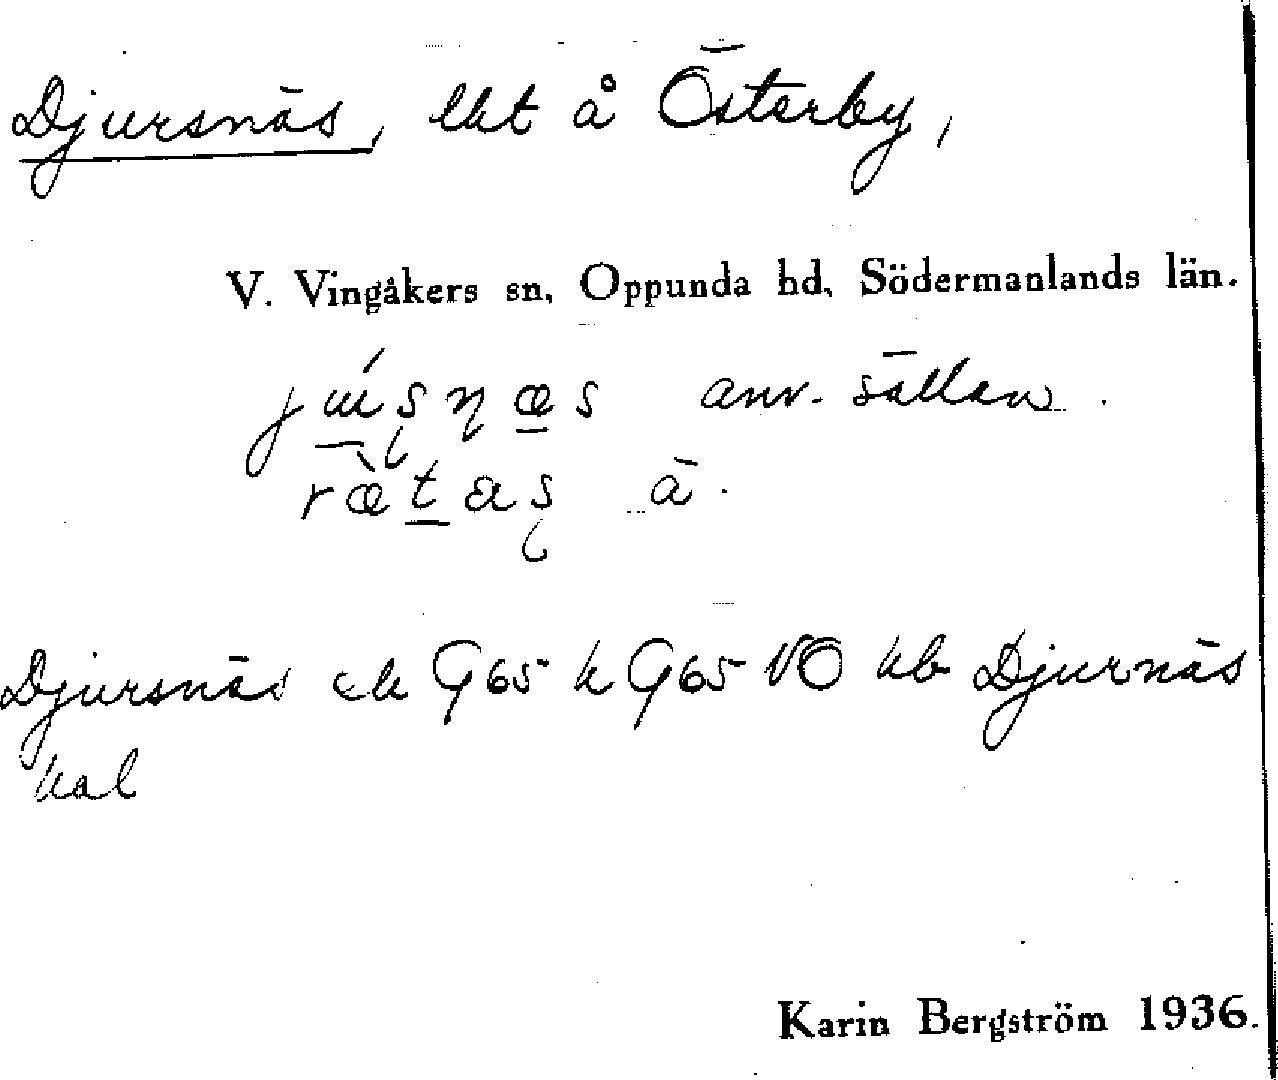 Djursnäs, lht å Österby,
V. Vingåkers sn, Oppunda hd, Södermanlands län.
anv. sällan.
ä.
Djursnäs ek G65 k G65 VO kb Djurnäs
hal
Karin Bergström 1936.